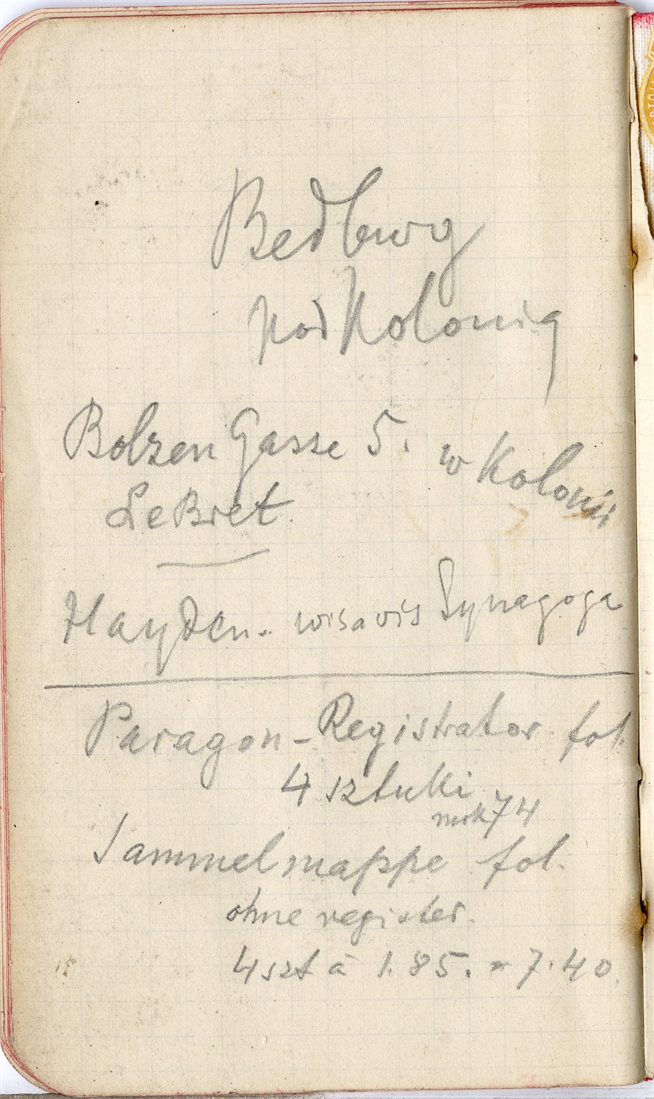 Bedburg
pod Kolonią
Bolzen Gasse 5. w Kolonii
Le Bret
Hayden. wisavis Synagoga
Paragon-Registrator fol.
4 sztuki
mrk 74
Sammelmappe fol.
ohne register.
4 szt à 1.85. = 7.40.